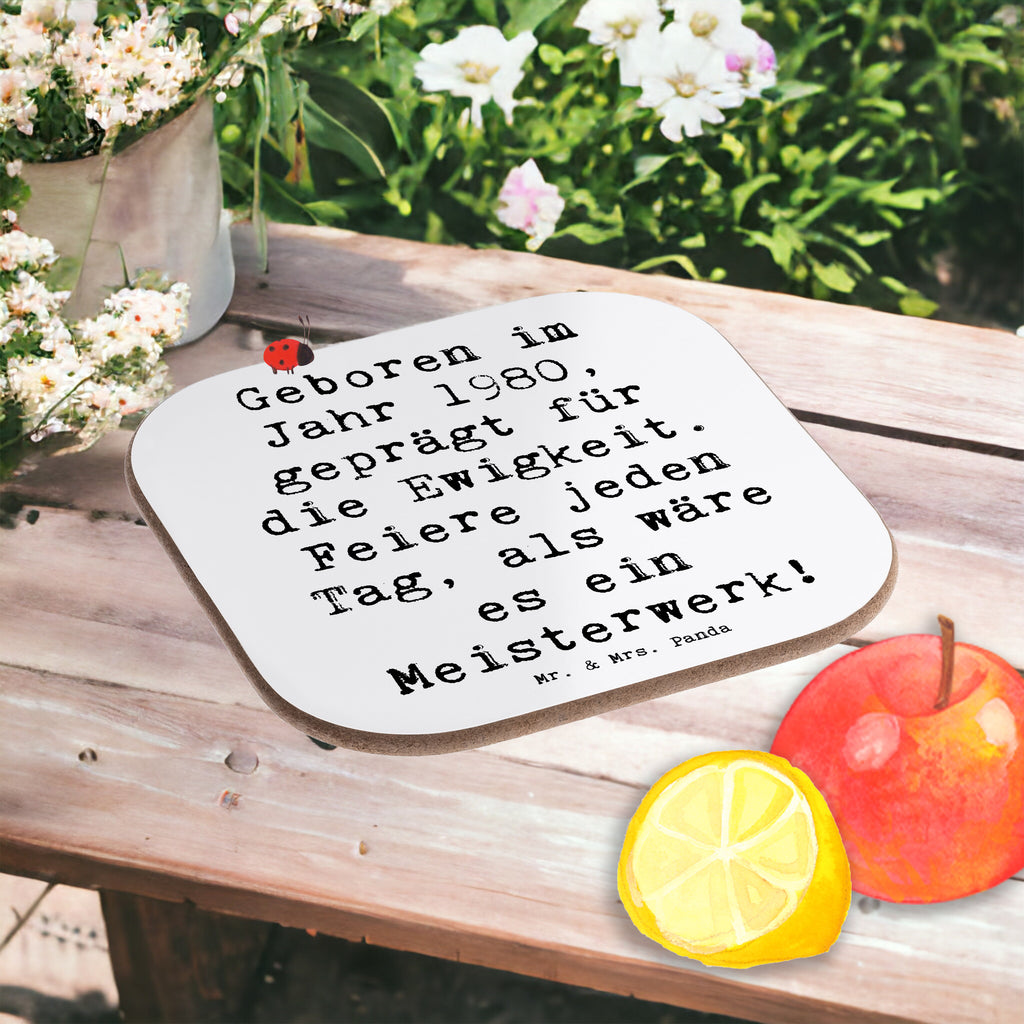 Geboren im
Jahr 1980,
geprägt für
die Ewigkeit.
Feiere jeden
Tag, als wäre
es ein
Meisterwerk!
Mr. & Mrs. Panda